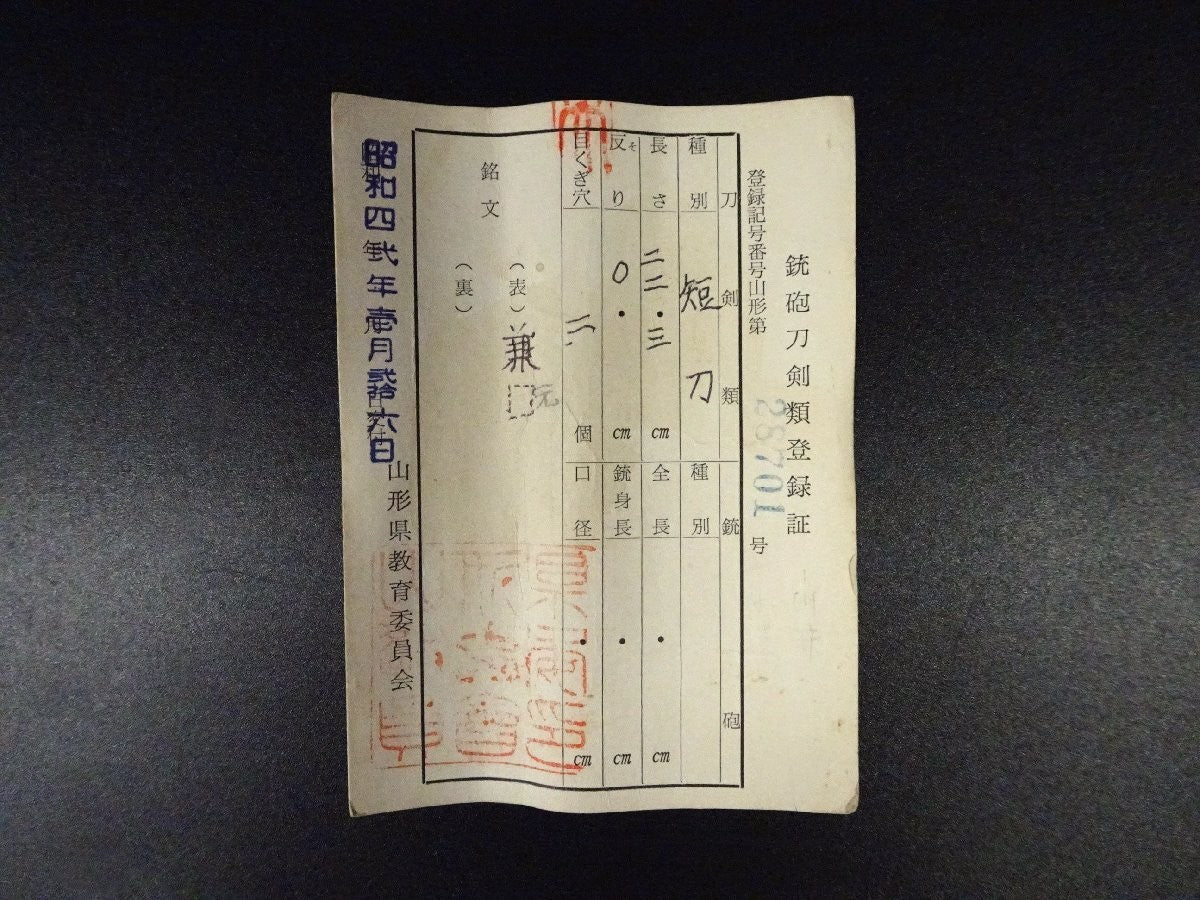 銃砲刀剣類登録証
登録記号番号山形第28701号
刀剣類 銃砲
種別 短刀 種別
長さ 二二.三cm 全長 .cm
反り そ 〇.cm 銃身長 .cm
目くぎ穴 二個 口径 .cm
銘文
(表)兼 元
(裏)
昭和四弐年壱月弐拾六日
山形県教育委員会